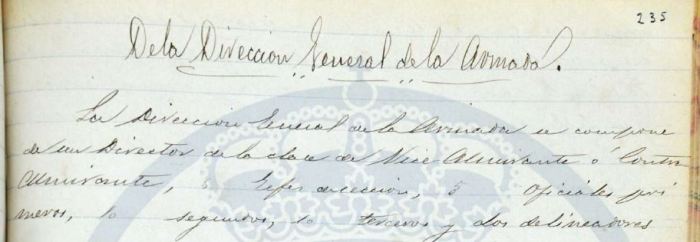 235
De la Direccion General de la Armada.
La Direccion General de la Armada se compone
de un Director de la clase de Vice Almirante ó Contra
almirante, 6 Gefes de seccion, 5 Oficiales pri
meros, 10 segundos, 10 terceros y dos delineadores